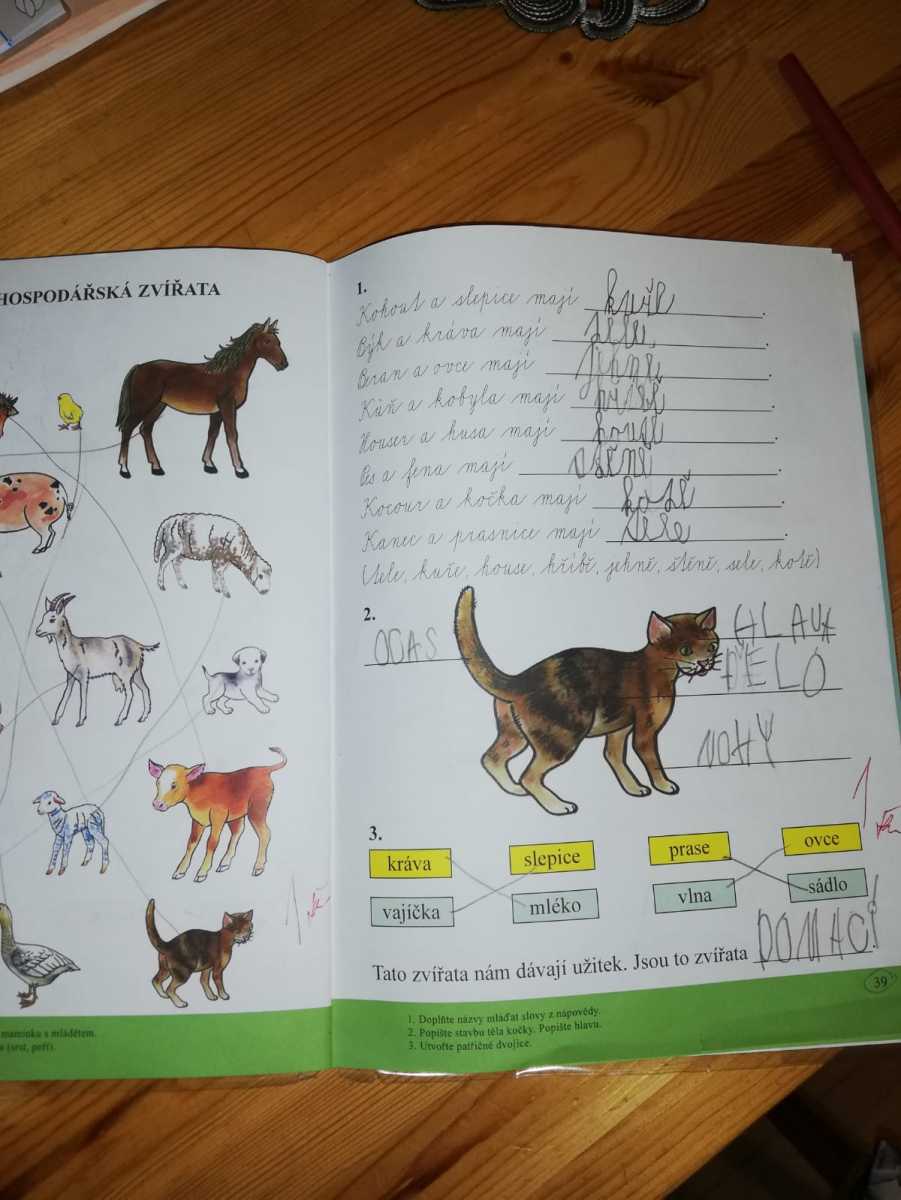 HOSPODÁŘSKÁ ZVÍŘATA
maminku s mládětem.
(srst, peří).
1.
Kohout a slepice mají kuře.
Býk a kráva mají tele.
Beran a ovce mají
Kůň a kobyla mají
Houser a husa mají house.
Pes a fena mají štěně.
Kocour a kočka mají kotě.
Kanec a prasnice mají
(tele, kuře, house, hříbě, jehně, štěně, sele, kotě)
2.
OCAS
HLAVA
TĚLO
NOHY
3.
kráva slepice prase ovce
vajíčka mléko vlna sádlo
Tato zvířata nám dávají užitek. Jsou to zvířata DOMACÍ
39
1. Doplňte názvy mláďat slovy z nápovědy.
2. Popište stavbu těla kočky. Popište hlavu.
3. Utvořte patřičné dvojice.